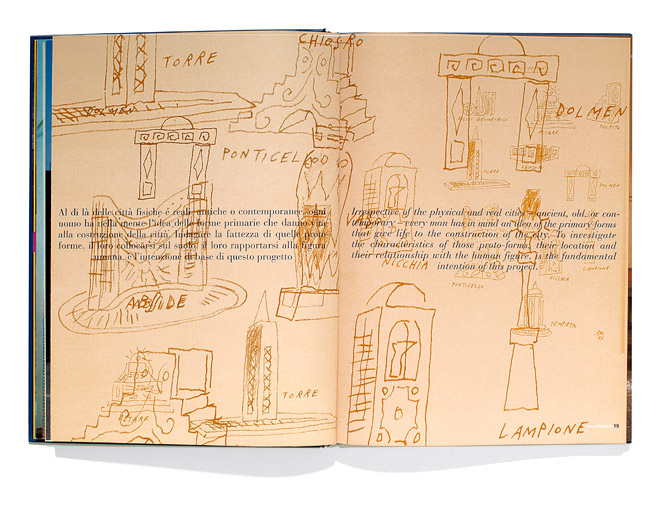 CHIOSRO
TORRE
DOLMEN
PONTICELLO
Al di là delle città fisiche e reali, antiche o contemporanee, ogni
uomo ha nella mente l'idea delle forme primarie che danno vita
alla costruzione della città. Indagare la fattezza di quelle proto
forme, il loro collocarsi sul suolo, il loro rapportarsi alla figura
umana, è l'intenzione di base di questo progetto
ABSIDE
ALTARE
TORRE
DOLMEN
TORRE
DOLMEN
Irrespective of the physical and real cities – ancient, old, or con-
temporary – every man has in mind an idea of the primary forms
that give life to the construction of the city. To investigate
the characteristics of those proto-forms, their location and
their relationship with the human figure, is the fundamental
intention of this project.
NICCHIA
PONTICELLO
LAMPIONE
NICCHIA
TEMPIETTO
LAMPIONE
19